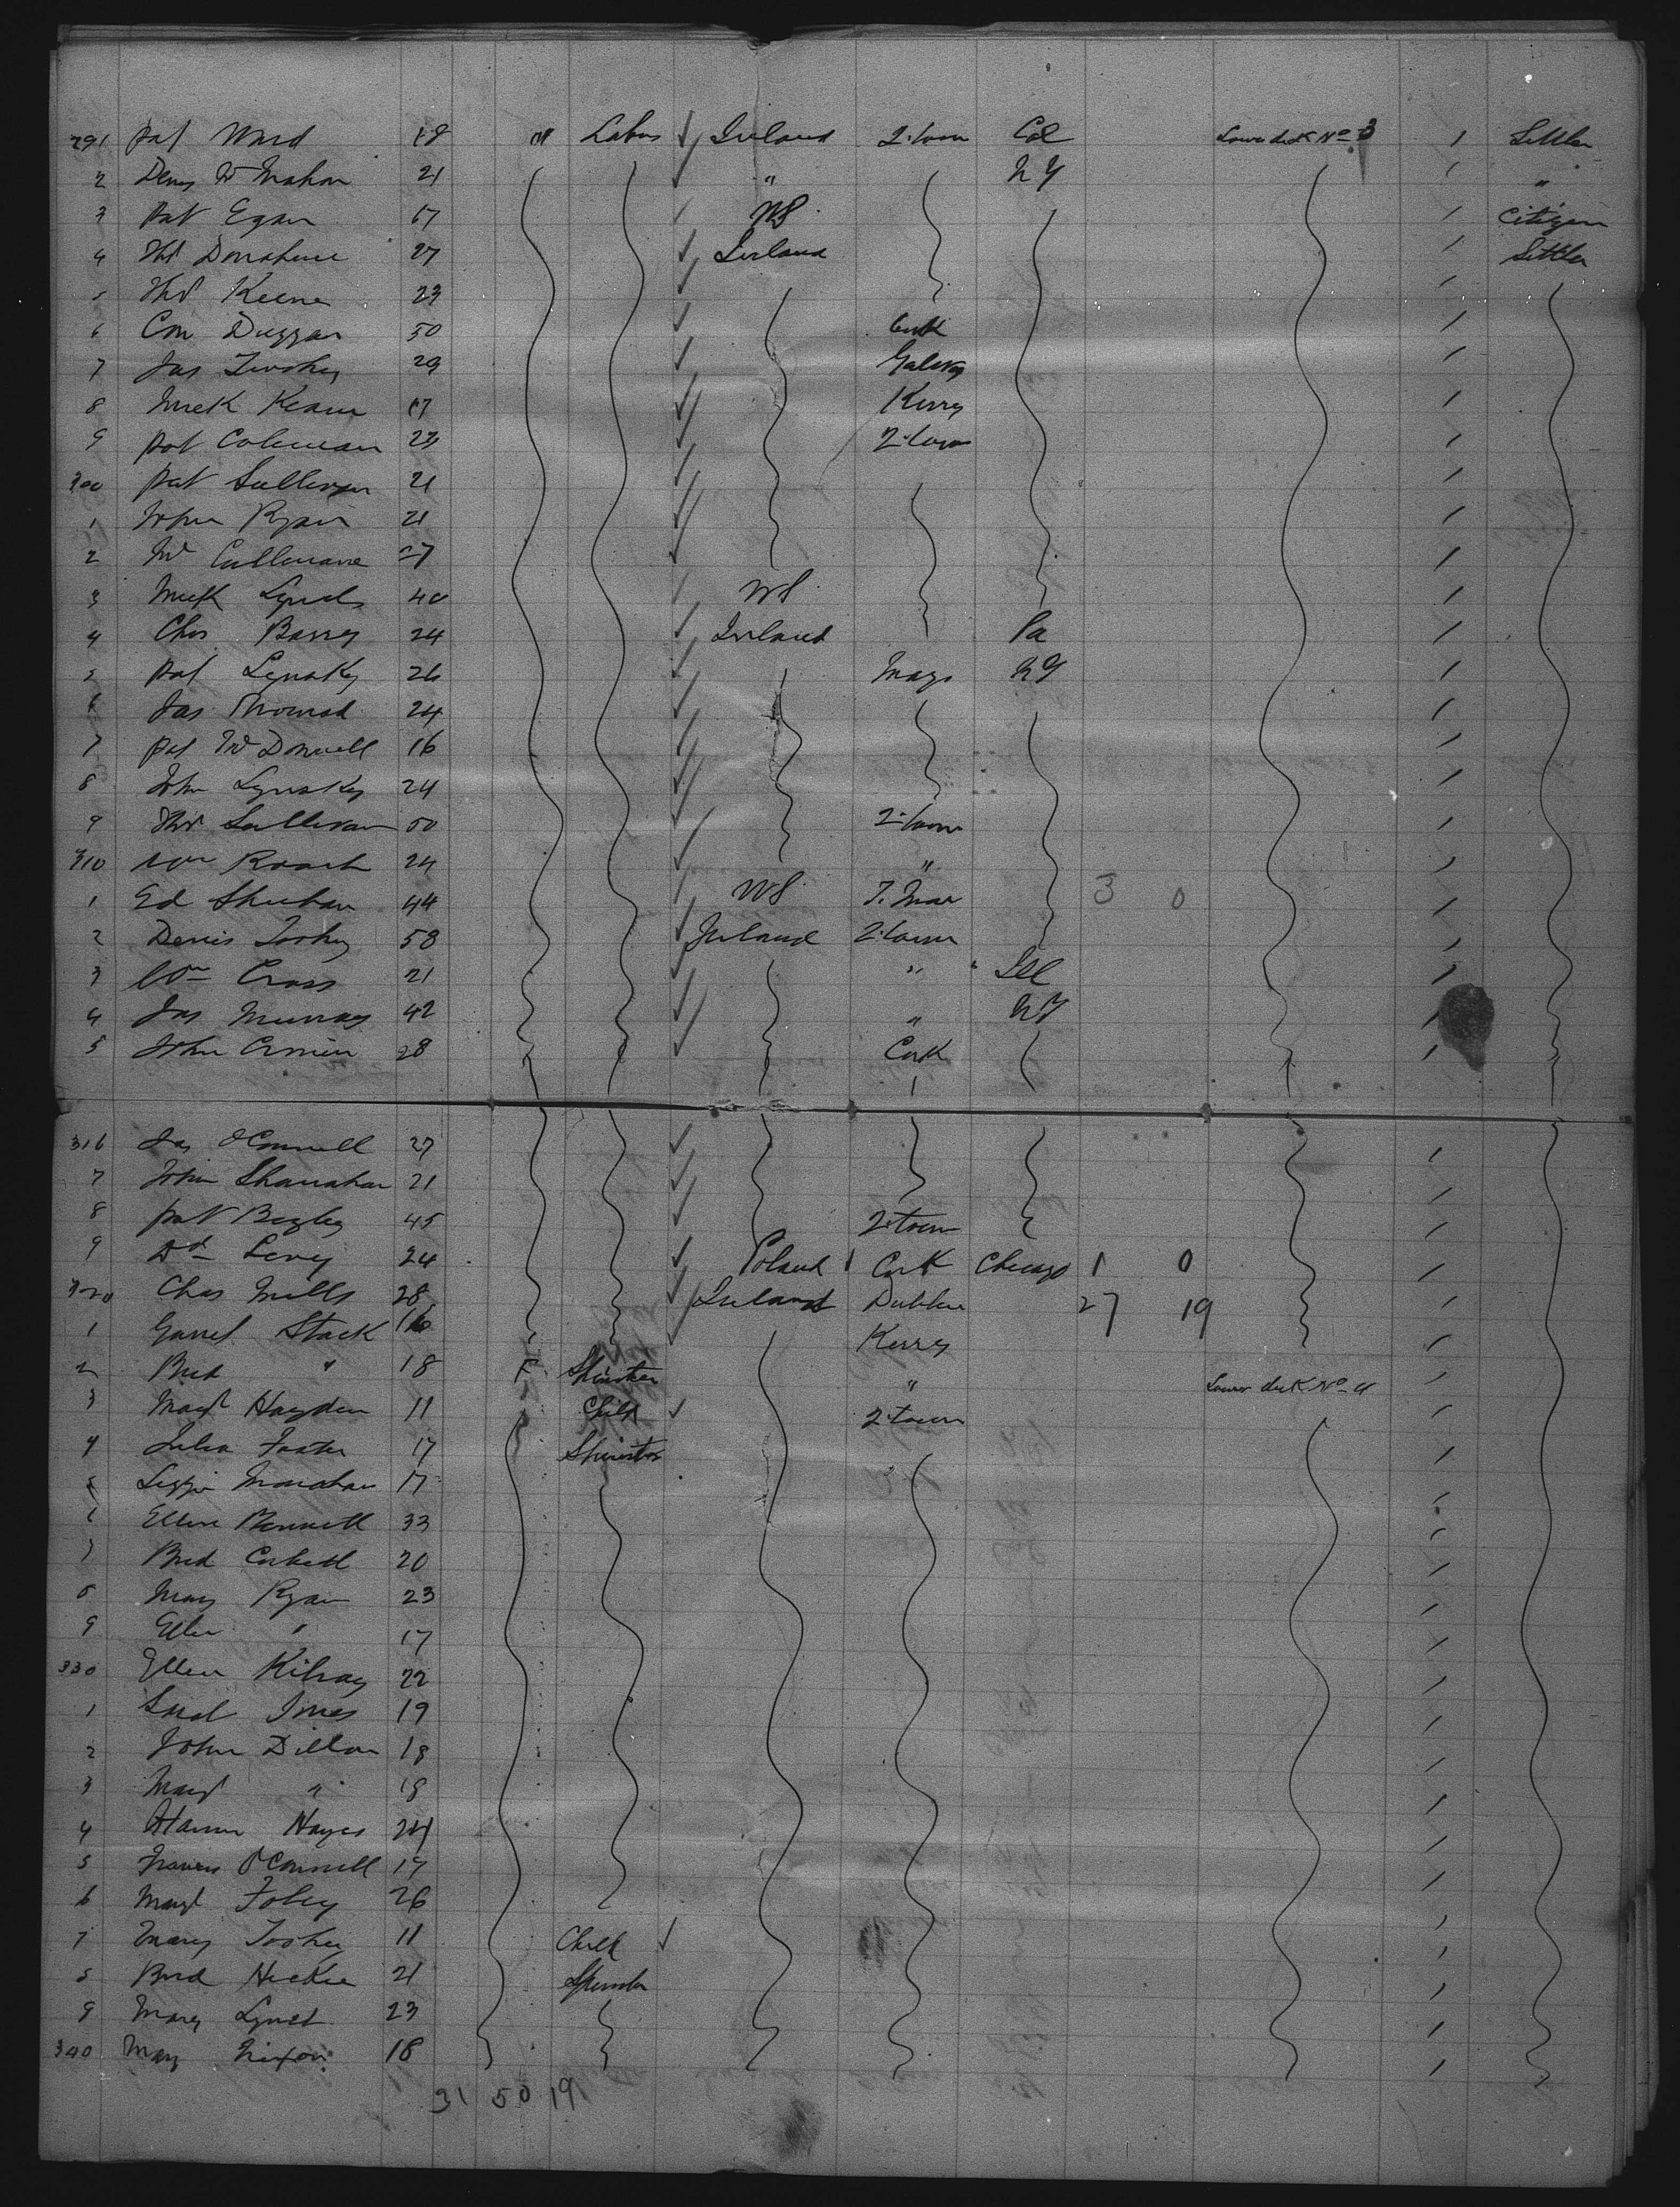 291 Pat Ward 18 M Labor Ireland Q.town Col Lower deck No 3 1 Settler
2 Deny McMahon 21 " N Y "
3 Pat Egan 67 US Citizen
4 Thos Donahue 27 Ireland Settler
5 Thos Keene 23
6 Con Duggan 50 Cork
7 Jas Twohy 29 Galway
8 Mick Keane 17 Kerry
9 Pat Coleman 23 Q.town
300 Pat Sullivan 21
1 John Ryan 21
2 Cullinane 27
3 Mick Lynch 40 US
4 Chas Barry 24 Ireland Pa
5 Pat Lynsky 26 Mayo N Y
6 Jas 24
7 Pat McDonnell 16
8 John Lynsky 24
9 Sullivan 50 Q.town
310 Wm Roach 24 "
1 Ed Sheehan 44 US 3 0
2 Denis Toohy 58 Ireland Q.town
3 Wm Cross 21 " Ill
4 Jas Murray 42 " N Y
5 John Cronin 28 Cork
316 Jas O'Connell 27
7 John Shanahan 21
8 Pat Begley 45 Q.town
9 Dd Levy 24 Poland Cork Chicago 1 0
320 Chas Mills 28 Ireland Dublin 27 19
1 Garret Stack 16 Kerry
2 Brid " 18 F Spinster " Lower deck No 4
3 Magt Hayden 11 Child Q.town
4 Julia Foster 17 Spinster
5 Lizzie Monahan 17
6 Ellen Bennett 33
7 Brid Corbett 20
8 Mary Ryan 23
9 Ellen " 17
330 Ellen Kilroy 22
1 19
2 John Dillon 18
3 Magt " 18
4 Hanna Hayes 24
5 Frances O'Connell 17
6 Magt Foley 26
7 Mary Toohey 11 Child
8 Brid Hickie 21 Spinster
9 Mary Lynch 23
340 Mary Nixon 18
31 50 19